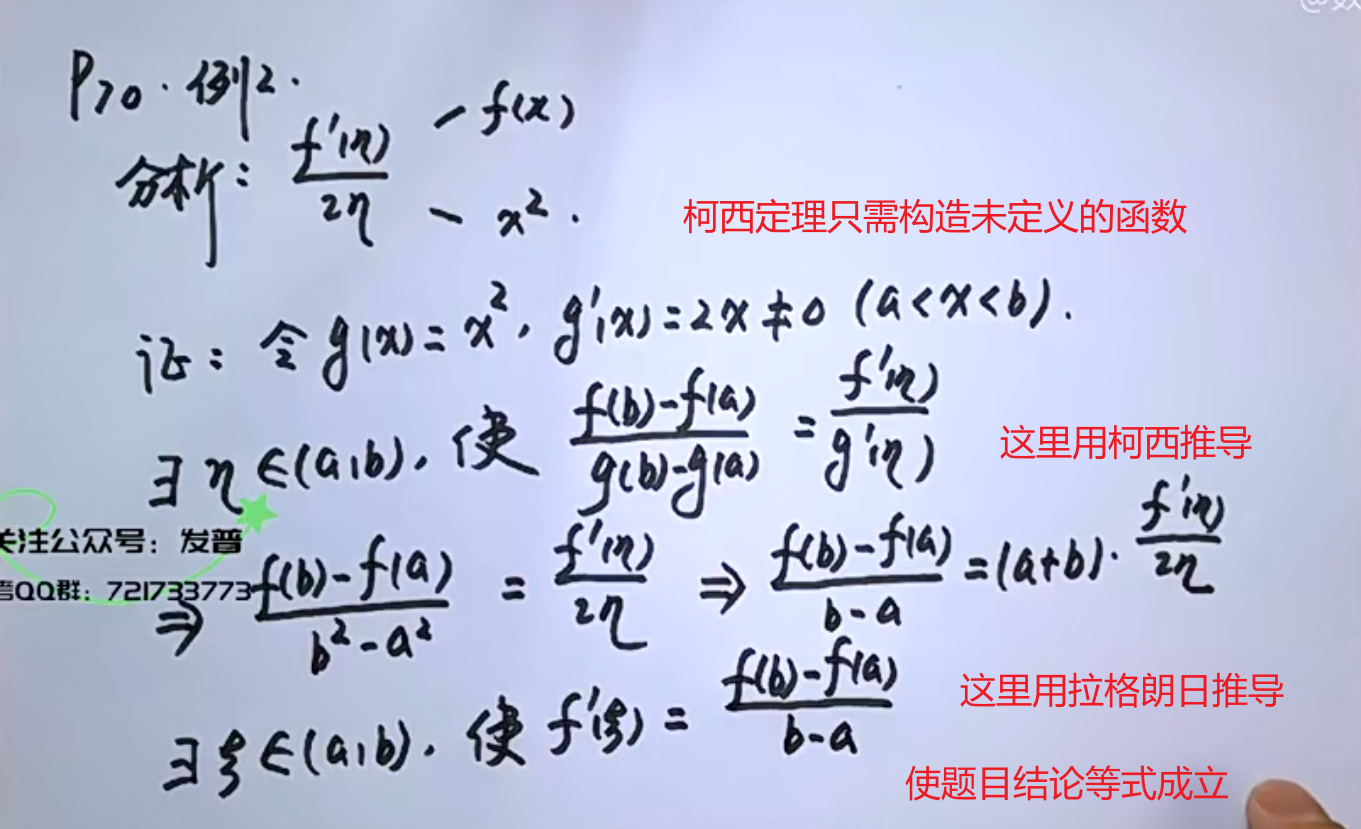 P70. 例2.
分析: f'(η)/2η — f(x)
— x².
柯西定理只需构造未定义的函数
证: 令g(x)=x², g'(x)=2x≠0 (a<x<b).
∃η∈(a,b), 使 (f(b)-f(a))/(g(b)-g(a)) = f'(η)/g'(η)
这里用柯西推导
关注公众号：发普
QQ群：721733773
⇒ (f(b)-f(a))/(b²-a²) = f'(η)/2η ⇒ (f(b)-f(a))/(b-a) = (a+b)· f'(η)/2η
∃ξ∈(a,b), 使 f'(ξ) = (f(b)-f(a))/(b-a)
这里用拉格朗日推导
使题目结论等式成立